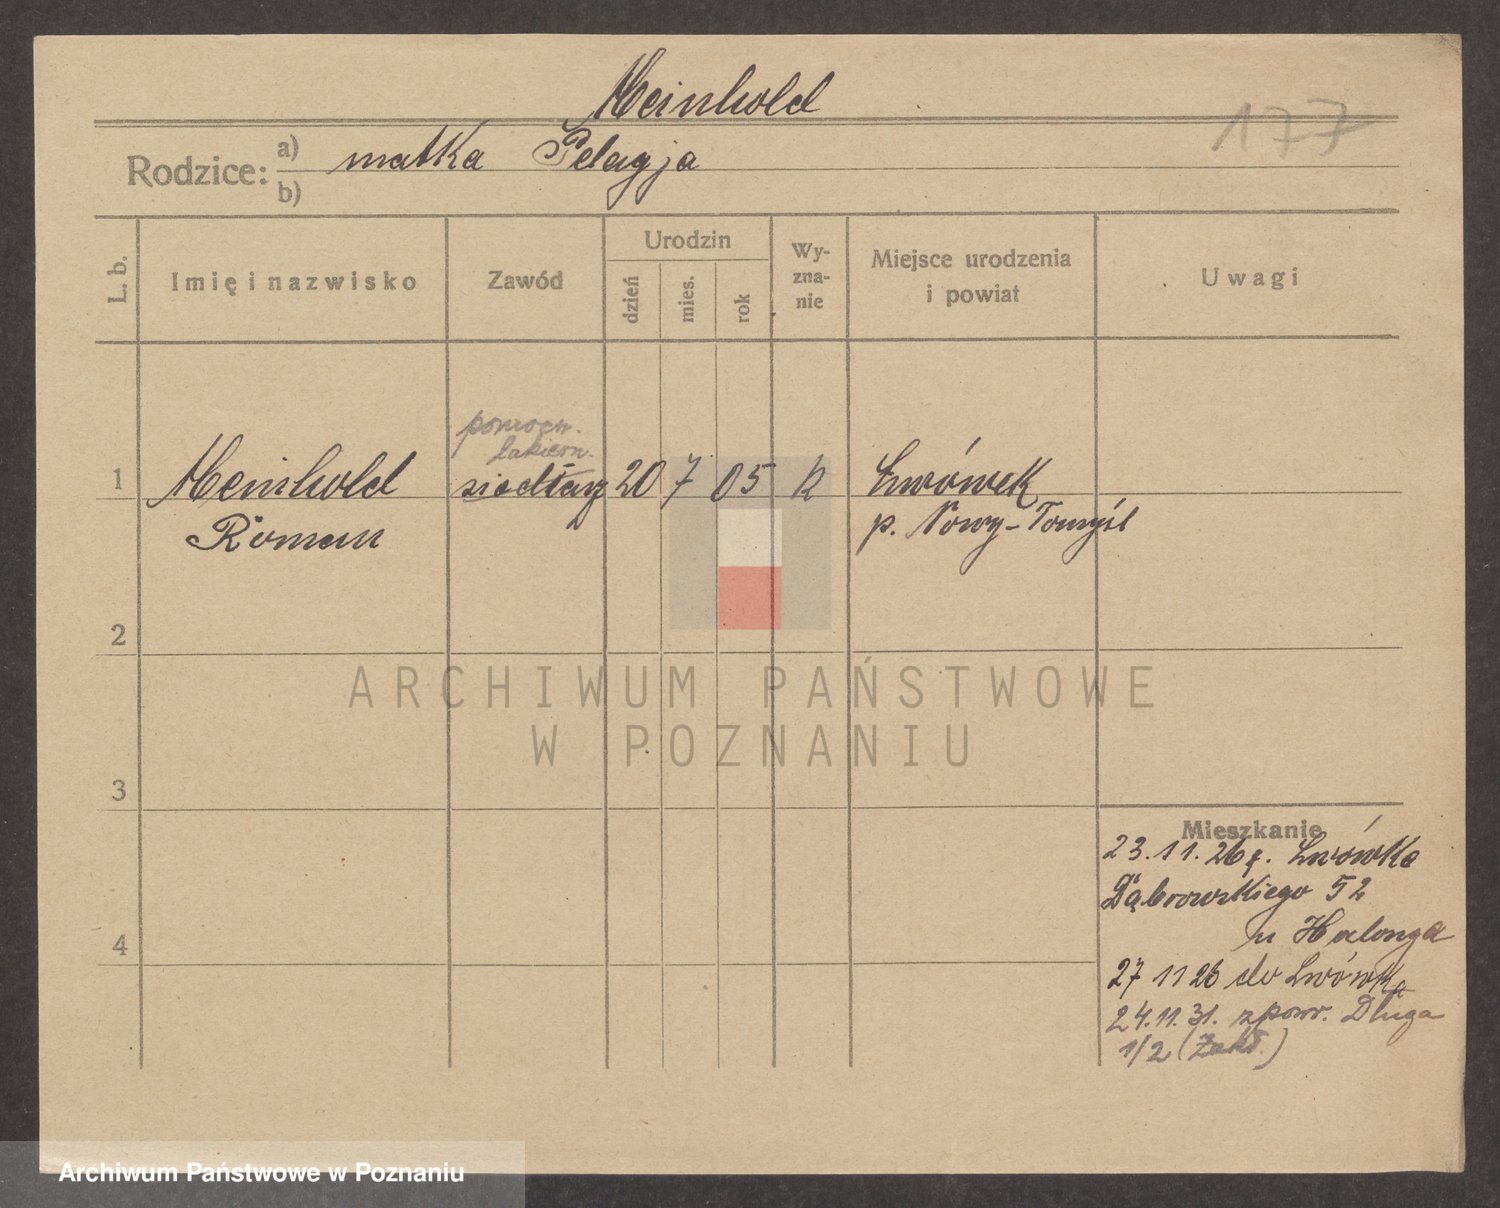 Meinhold
177
Rodzice: a) matka Pelagja
b)
L. b.
Imię i nazwisko
Zawód
Urodzin
dzień
mies.
rok
Wy-
zna-
nie
Miejsce urodzenia
i powiat
Uwagi
pomocn.
lakiern.
1 Meinhold siodlarz 20 7 05 k Lwówek
Roman p. Nowy-Tomyśl
2
3
4
Mieszkanie
23.11.26 z. Lwówka
Dąbrowskiego 52
u Halonga
27 11 26 do Lwówka
24.11.31. z powr. Długa
1/2 (Zakł.)
ARCHIWUM PAŃSTWOWE
W POZNANIU
Archiwum Państwowe w Poznaniu